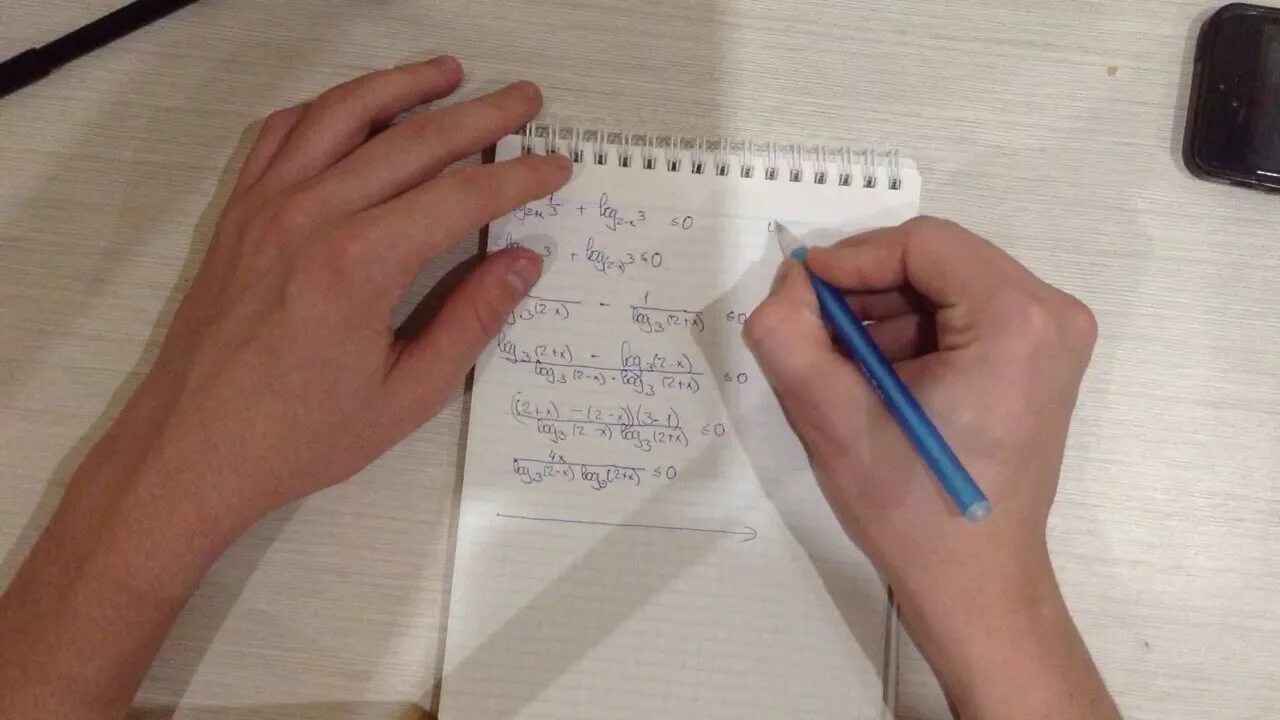 log_{2+x} 1/3 + log_{2-x} 3 ≤0
3 + log_{(2-x)} 3 ≤0
log_3(2-x) - 1/(log_3(2+x)) ≤0
(log_3(2+x) - log_3(2-x))/(log_3(2-x) · log_3(2+x)) ≤0
((2+x) - (2-x))(3-1)/(log_3(2-x) log_3(2+x)) ≤0
4x/(log_3(2-x) log_3(2+x)) ≤0